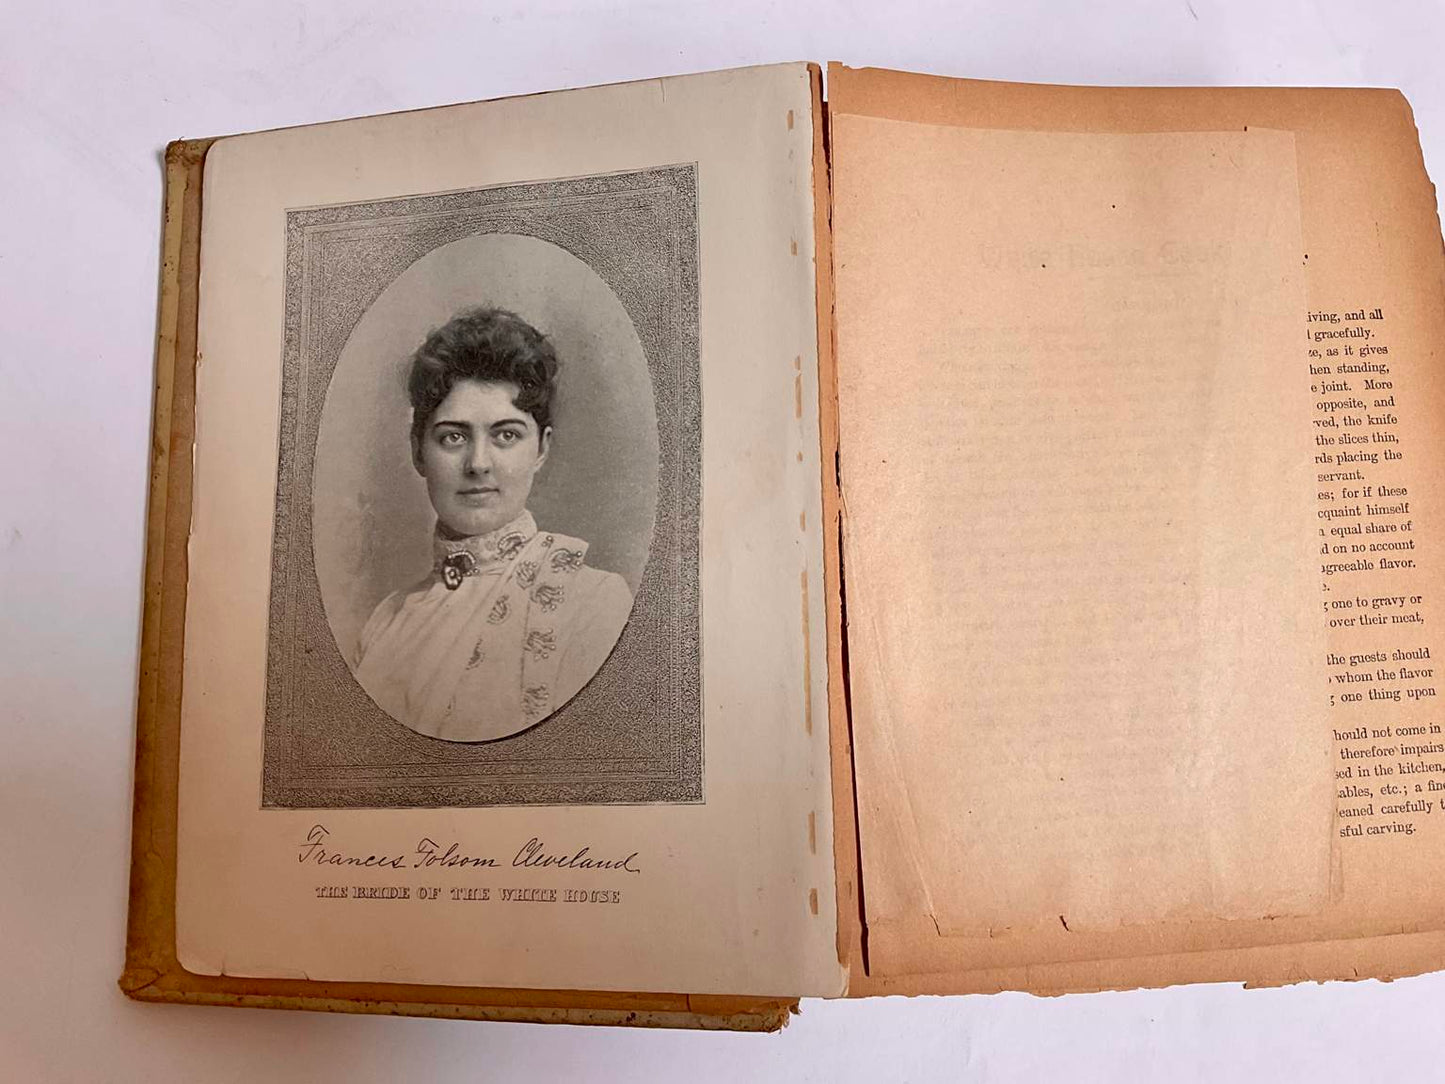 Frances Folsom Cleveland
THE BRIDE OF THE WHITE HOUSE
iving, and all
gracefully.
as it gives
hen standing,
e joint. More
opposite, and
ved, the knife
the slices thin,
rds placing the
servant.
es; for if these
cquaint himself
equal share of
d on no account
agreeable flavor.
one to gravy or
over their meat,
the guests should
whom the flavor
one thing upon
hould not come in
therefore impairs
sed in the kitchen,
ables, etc.; a fine
leaned carefully t
sful carving.